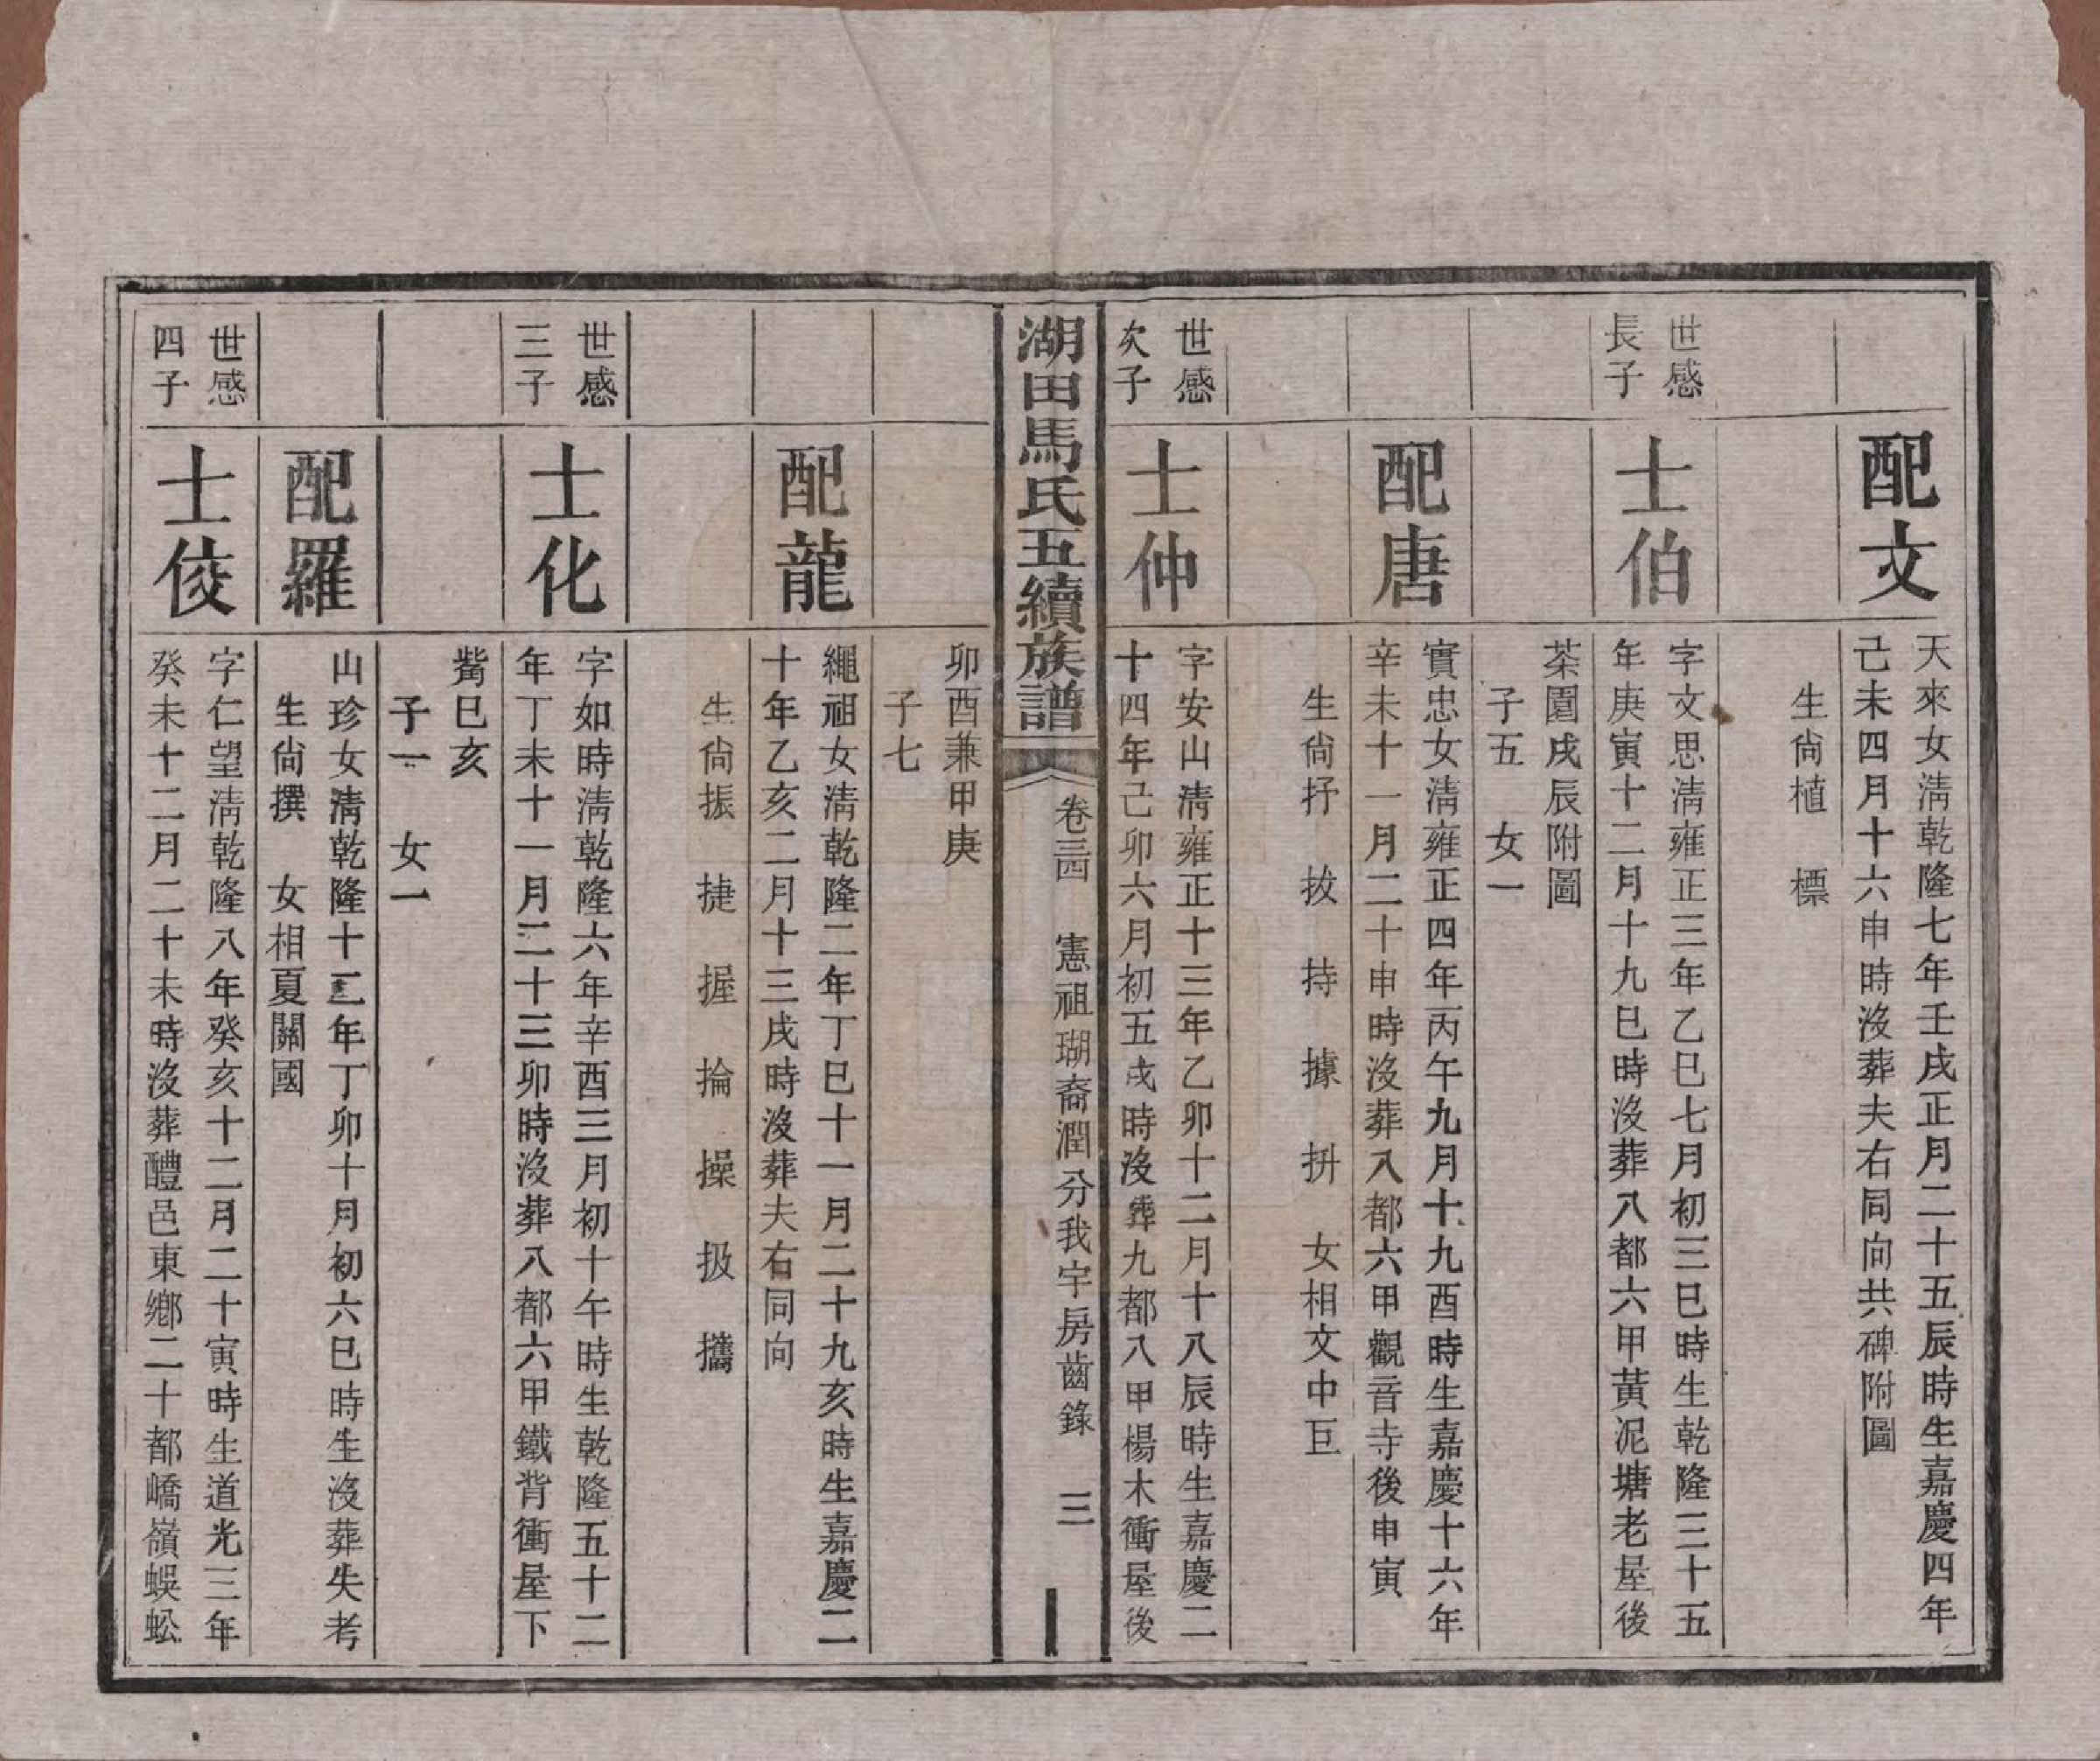 配文
天來女淸乾隆七年壬戌正月二十五辰時生嘉慶四年
己未四月十六申時沒葬夫右同向共碑附圖
生尙植　標
世感
長子
士伯
字文思淸雍正三年乙巳七月初三巳時生乾隆三十五
年庚寅十二月十九巳時沒葬八都六甲黃泥塘老屋後
茶園戌辰附圖
子五　女一
配唐
實忠女淸雍正四年丙午九月十九酉時生嘉慶十六年
辛未十一月二十申時沒葬八都六甲觀音寺後申寅
生尙抒　拔　持　據　拚　女相文中巨
世感
次子
士仲
字安山淸雍正十三年乙卯十二月十八辰時生嘉慶二
十四年己卯六月初五戌時沒葬九都八甲楊木衝屋後
湖田馬氏五續族譜
卷三四　憲祖瑚裔潤分我宇房齒錄　三
卯酉兼甲庚
子七
配龍
繩祖女淸乾隆二年丁巳十一月二十九亥時生嘉慶二
十年乙亥二月十三戌時沒葬夫右同向
生尙振　捷　握　掄　操　扱　攜
世感
三子
士化
字如時淸乾隆六年辛酉三月初十午時生乾隆五十二
年丁未十一月二十三卯時沒葬八都六甲鐵背衝屋下
觜巳亥
子一　女一
配羅
山珍女淸乾隆十二年丁卯十月初六巳時生沒葬失考
生尙撰　女相夏關國
世感
四子
士佼
字仁望淸乾隆八年癸亥十二月二十寅時生道光三年
癸未十二月二十未時沒葬醴邑東鄉二十都嶠嶺蜈蚣